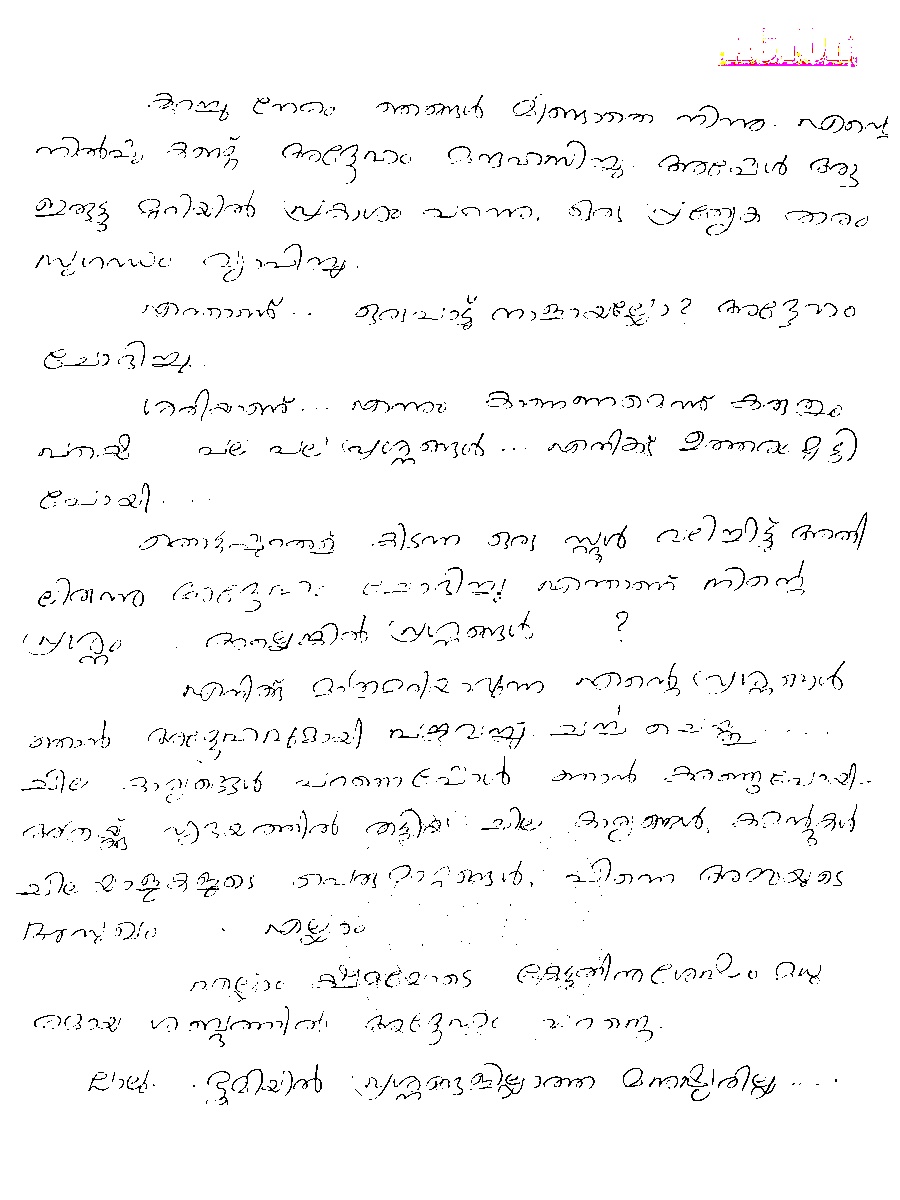 കുറച്ചു നേരം ഞങ്ങൾ മിണ്ടാതെ നിന്നു. എന്റെ
നിൽപ്പു കണ്ട് അദ്ദേഹം മന്ദഹസിച്ചു. അപ്പോൾ ആ
ഇരുണ്ട മുറിയിൽ പ്രകാശം പറന്നു. ഒരു പ്രത്യേക തരം
സുഗന്ധം വ്യാപിച്ചു.
എന്താണ്... ഒരുപാട് നാളായല്ലോ? അദ്ദേഹം
ചോദിച്ചു.
ശരിയാണ്... എന്നും കാണണമെന്ന് കരുതും
പക്ഷേ പല പല പ്രശ്നങ്ങൾ... എനിക്ക് ബുദ്ധിമുട്ടി
പോയി....
തൊട്ടപ്പുറത്ത് കിടന്ന ഒരു സ്റ്റൂൾ വലിച്ചിട്ട് അതി
ലിരുന്നു അദ്ദേഹം ചോദിച്ചു എന്താണ് നിന്റെ
പ്രശ്നം. അല്ലെങ്കിൽ പ്രശ്നങ്ങൾ ?
എനിക്ക് മാത്രമറിയാവുന്ന എന്റെ പ്രശ്നങ്ങൾ
ഞാൻ അദ്ദേഹവുമായി പങ്കുവച്ചു. ചർച്ച ചെയ്തു.....
ചില കാര്യങ്ങൾ പറഞ്ഞപ്പോൾ ഞാൻ കരഞ്ഞുപോയി..
അത്രയ്ക്ക് ഹൃദയത്തിൽ തട്ടിയ ചില കാര്യങ്ങൾ,
ചിലയാളുകളുടെ പെരുമാറ്റങ്ങൾ, പിന്നെ അമ്മയുടെ
അസുഖം . എല്ലാം
എല്ലാം ക്ഷമയോടെ കേട്ടതിനുശേഷം മധു
രമായ ശബ്ദത്തിൽ അദ്ദേഹം പറഞ്ഞു.
ഭൂമിയിൽ പ്രശ്നങ്ങളില്ലാത്ത മനുഷ്യരില്ല....